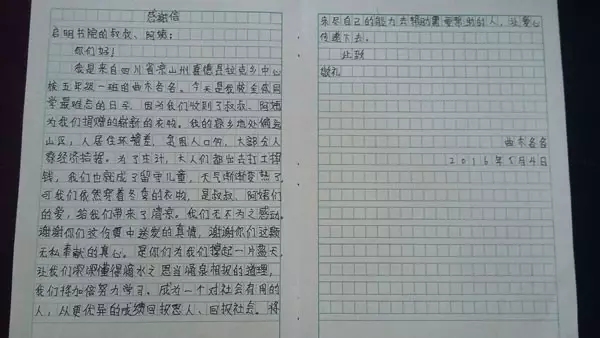 感谢信
启明书院的叔叔、阿姨：
你们好！
我是来自四川省凉山州喜德县拉克乡中心
校五年级一班的曲木名名。今天是我校全体同
学最难忘的日子，因为我们收到了叔叔、阿姨
为我们捐赠的崭新的衣物。我的家乡地处偏远
山区，人居住环境差，贫困人口多，大部分人
靠经济拮据。为了生计，大人们都出去打工挣
钱，我们也就成了留守儿童，天气渐渐变热了，
可我们依然穿着冬夏的衣物，是叔叔、阿姨们
的爱，给我们带来了清凉。我们无不为之感动。
谢谢你们这份雪中送炭的真情，谢谢你们这颗
无私奉献的真心。是你们为我们撑起一片蓝天，
让我们深深懂得滴水之恩当涌泉相报的道理，
我们将加倍努力学习，成为一个对社会有用的
人，以更优异的成绩回报恩人、回报社会。将
来尽自己的能力去帮助需要帮助的人，让爱心
传递下去。
此致
敬礼
曲木名名
2016年5月4日